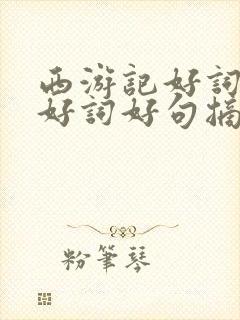 西游記好詞
好詞好句摘
粉筆琴